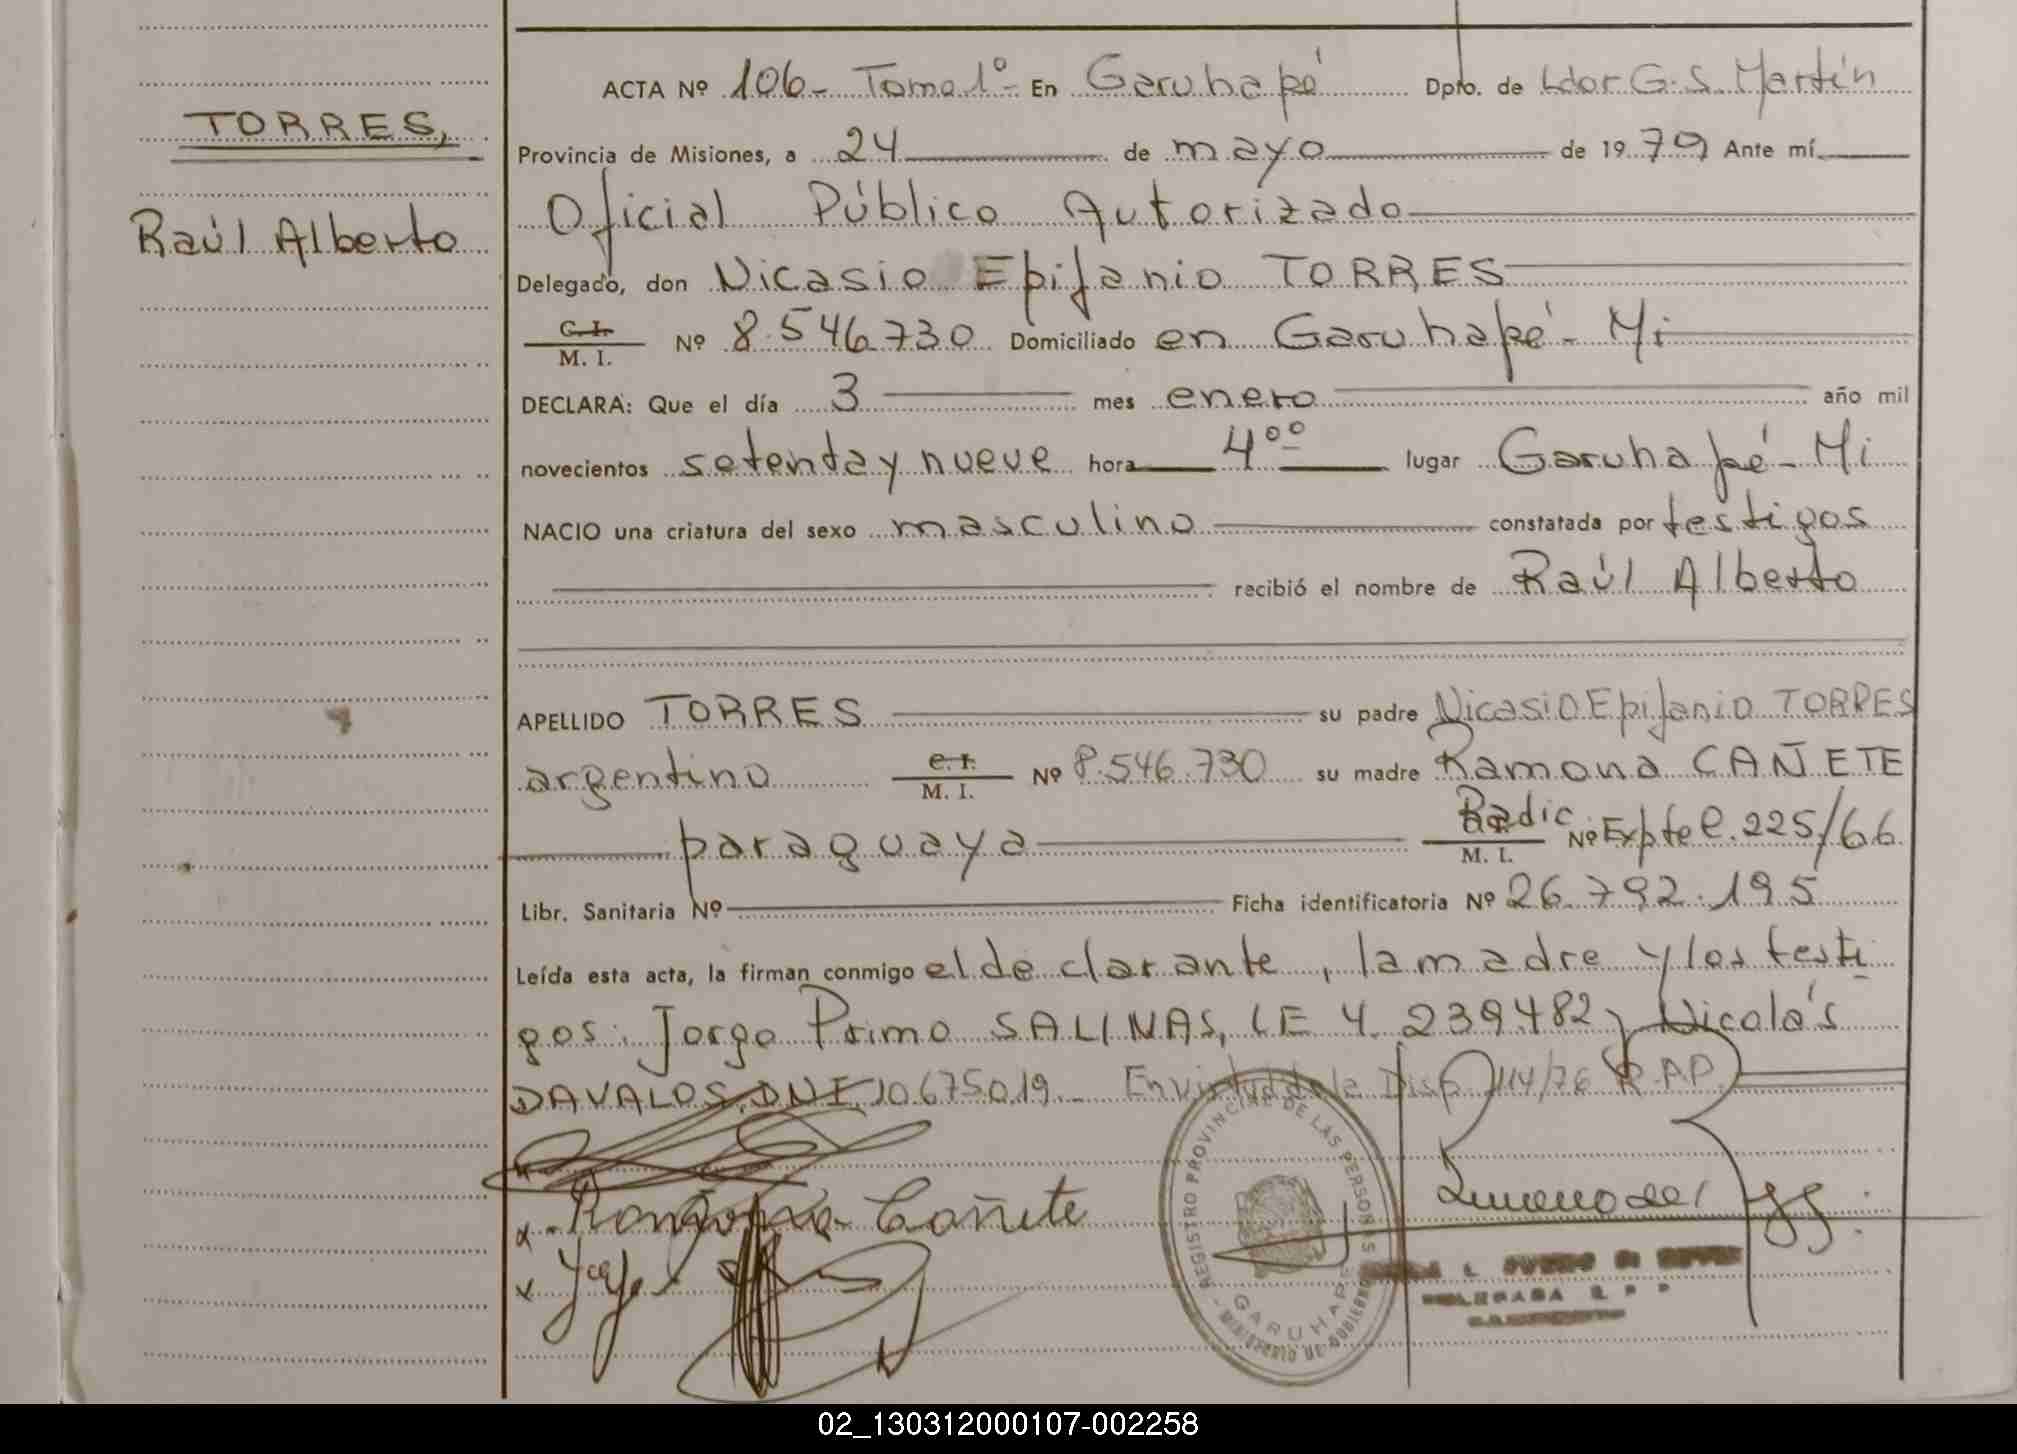 TORRES,
Raúl Alberto
ACTA Nº 106- Tomo 1º- En Garuhapé Dpto. de Ldor G. S. Martín
Provincia de Misiones, a 24 de mayo de 1979 Ante mí
Oficial Público Autorizado
Delegado, don Nicasio Epifanio TORRES
C. I. M. I. Nº 8.546.730 Domiciliado en Garuhapé - Mi
DECLARA: Que el día 3 mes enero año mil
novecientos setenta y nueve hora 4ºº lugar Garuhapé - Mi
NACIO una criatura del sexo masculino constatada por testigos
recibió el nombre de Raúl Alberto
APELLIDO TORRES su padre Nicasio Epifanio TORRES
argentino C. I. M. I. Nº 8.546.730 su madre Ramona CAÑETE
paraguaya Radic. M. I. Nº Expte C. 225/66
Libr. Sanitaria Nº Ficha identificatoria Nº 26.792.195
Leída esta acta, la firman conmigo el declarante, la madre y los testi
gos: Jorge Primo SALINAS, LE 4.239.482 y Nicolás
DAVALOS, DNI 10675019.- En virtud de la Disp. 114/76 R.P.P.
x Ramona Cañete
x Jorge
REGISTRO PROVINCIAL DE LAS PERSONAS
GARUHAPE
MINISTERIO DE GOBIERNO
DELEGADA R. P. P.
02_130312000107-002258